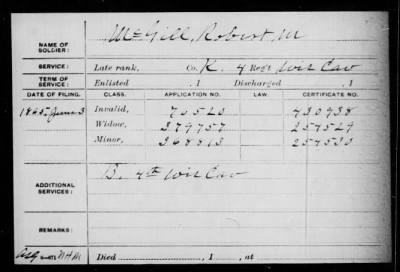 NAME OF SOLDIER: McGill, Robert M
SERVICE: Late rank, Co. K, 4 Reg't Wis Cav
TERM OF SERVICE: Enlisted , 1 Discharged , 1
DATE OF FILING. CLASS. APPLICATION NO. LAW. CERTIFICATE NO.
1865, June 3 Invalid, 70520 430938
Widow, 379757 257529
Minor, 368813 257530
ADDITIONAL SERVICES: B. 4th Wis Cav
REMARKS:
Died , 1 , at